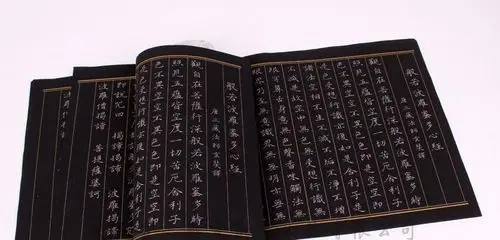 般若波羅蜜多心經
唐三藏法師玄奘譯
觀自在菩薩行深般若波羅蜜多時
照見五蘊皆空度一切苦厄舍利子
色不異空空不異色色即是空空即
是色受想行識亦復如是舍利子是
諸法空相不生不滅不垢不淨不增
不減是故空中無色無受想行識無
眼耳鼻舌身意無色聲香味觸法無
無明亦無
般若波羅蜜多心經
觀自在菩薩行深般若波羅蜜多時
照見五蘊皆空度一切苦厄舍利子
色不異空空不異色色即是空空即
是色受想行識亦復如是
即說咒曰 揭諦揭諦 波羅揭諦
波羅僧揭諦 菩提薩婆訶